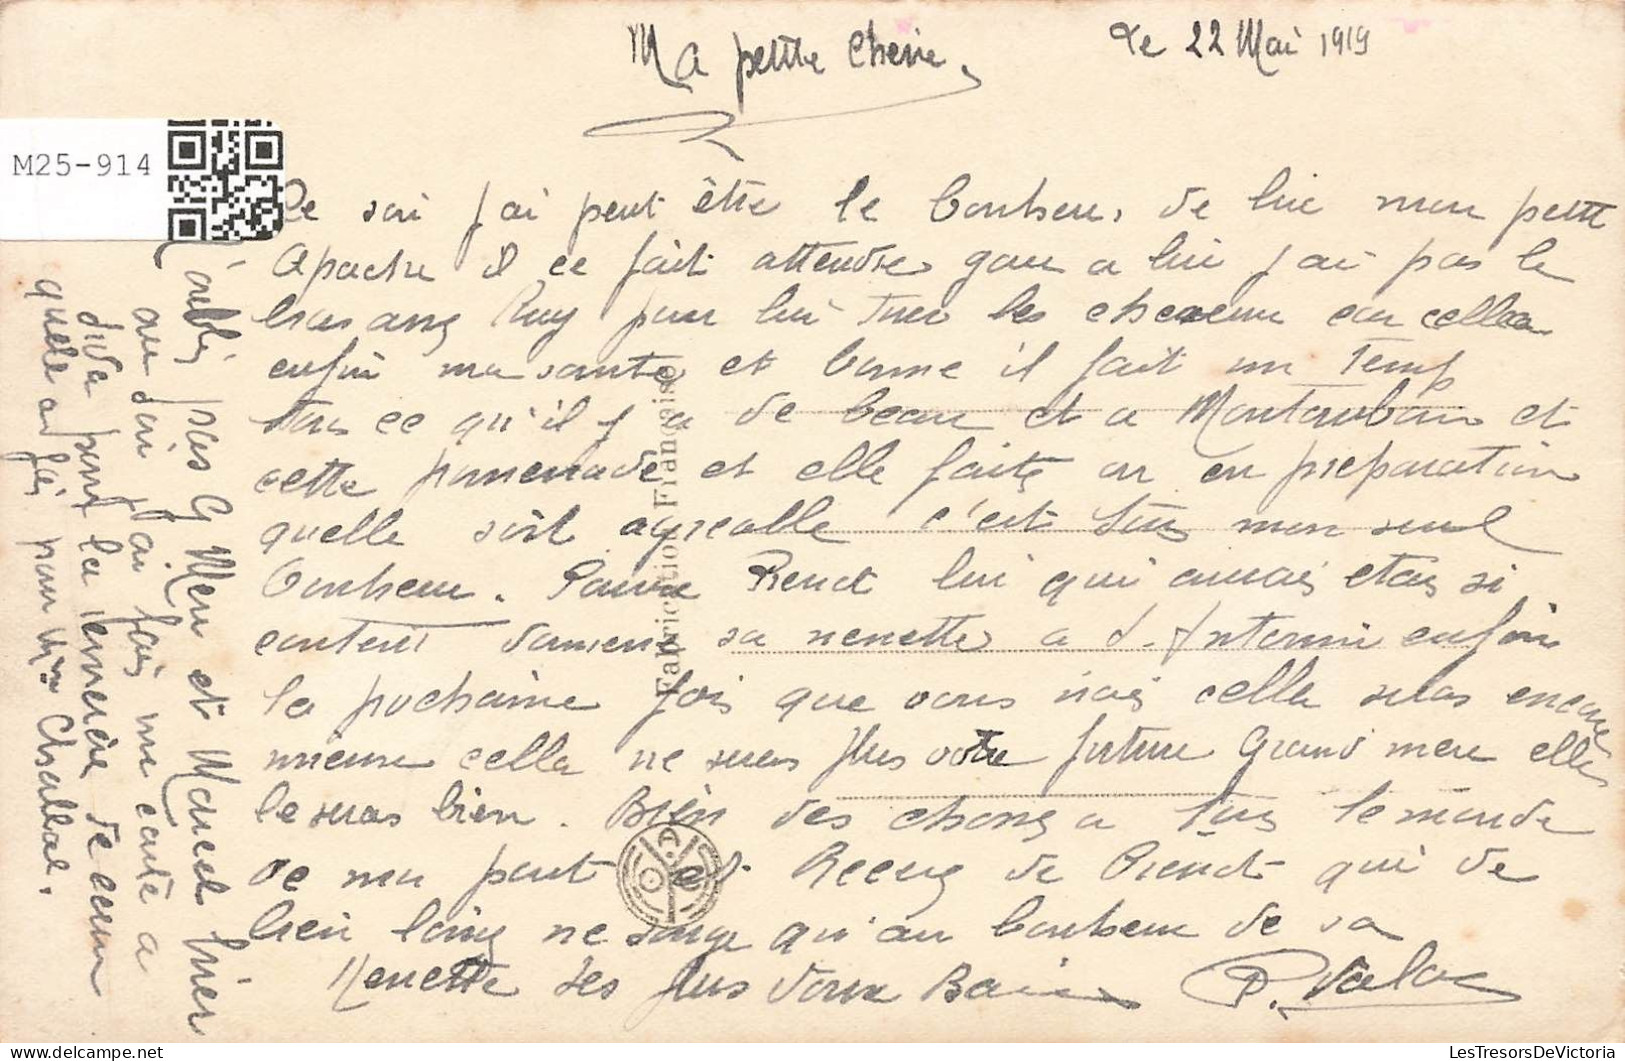 Ma petite Cherie,
Le 22 Mai 1919
M25-914
Ce soir j'ai peut être le bonheur, de lire mon petit
Apache il ce fait attendre gare a lui j'ai pas le
bras ang pour lui tirer les cheveux car cella
enfin ma sante et bonne il fait un temp
tous ce qu'il y a de beau et a Montauban et
cette promenade et elle faite ou en preparation
quelle soit agreable c'est tous mon seul
bonheur. Pauvre Benoit lui qui aurais etais si
contént damené sa nenette a St. Antonin enfin
la prochaine fois que vous irais cella seras encore
mieux cella ne seras plus votre future Grand mere elle
le seras bien. Bien des chose a tous le monde
de ma part et Recois de Benoit qui de
bien loing ne songe qu'au bonheur de sa
Nenette Ses plus doux Baise
oublis pas G Mere et Marcel hier
au soir j'ai fais une carte a
diva pour la remercié de ceux
quelle au fais pour Mme Chalbal.
Fabrication Française
LesTresorsDeVictoria